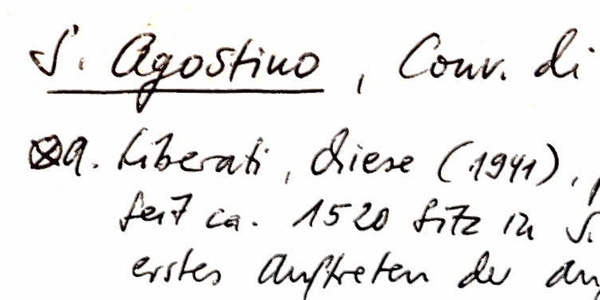 S. Agostino, Conv. di
A. Liberati, Chiese (1941),
seit ca. 1520 Sitz in S.
erstes Auftreten der